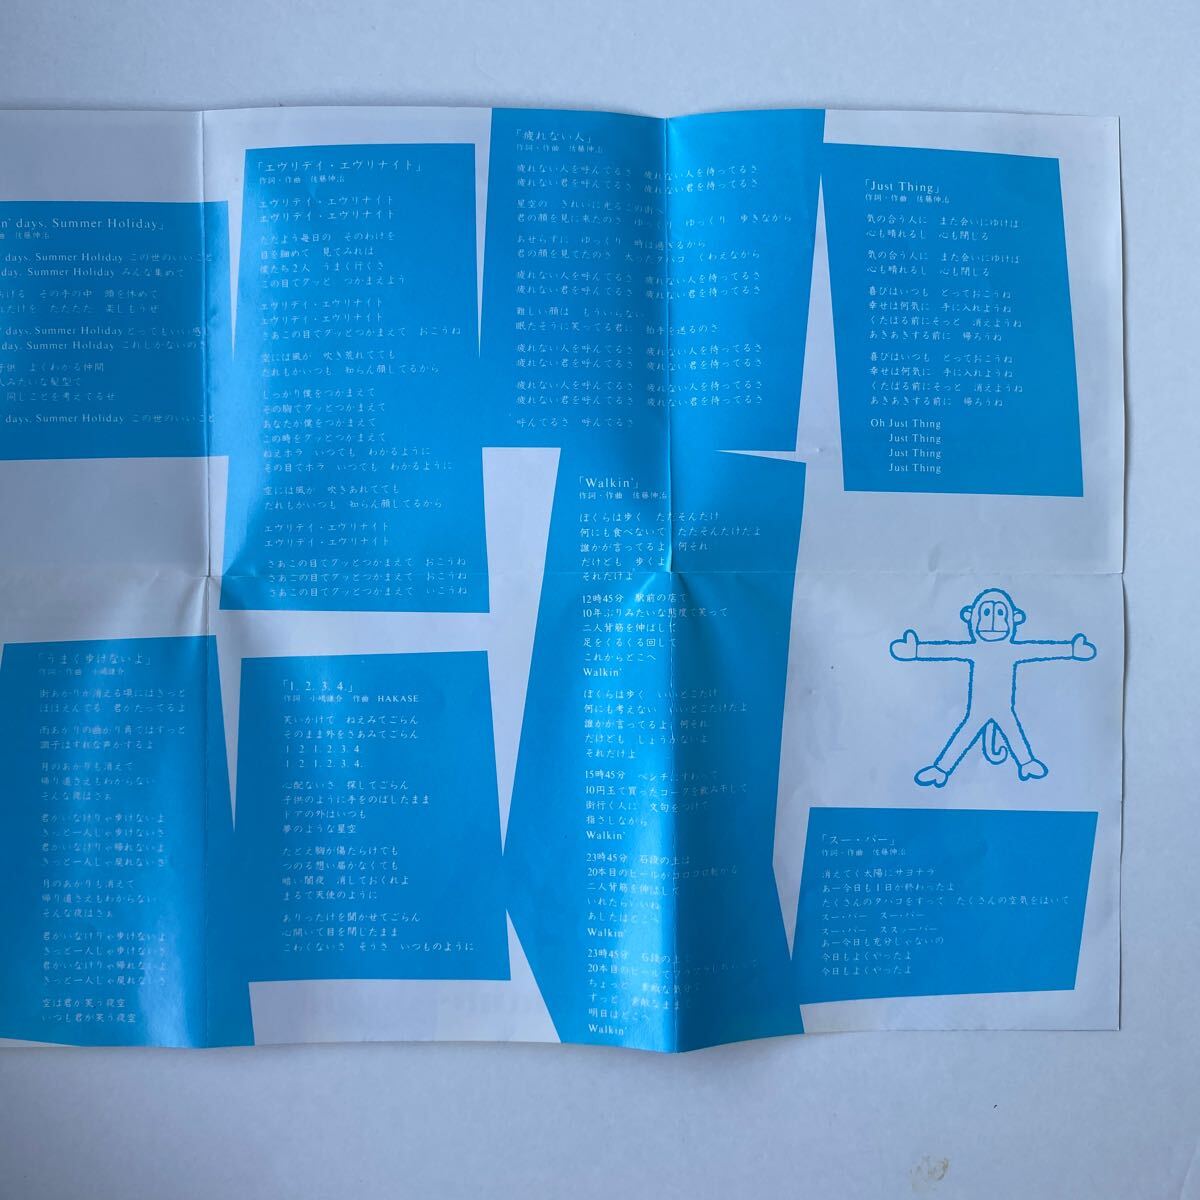 n' days, Summer Holiday」
曲 佐藤伸治
days, Summer Holiday この世のいいこと
day, Summer Holiday みんな集めて
あける その手の中 頭を休めて
れだけを たたたた 楽しもうせ
days, Summer Holiday とってもいい感
day, Summer Holiday これしかないのさ
子供 よくわかる仲間
人みたいな髪型で
同じことを考えてるせ
days, Summer Holiday この世のいいこと
「エヴリデイ・エヴリナイト」
作詞・作曲 佐藤伸治
エヴリデイ・エヴリナイト
エヴリデイ・エヴリナイト
ただよう毎日の そのわけを
目を細めて 見てみれは
僕たち2人 うまく行くさ
この目でグッと つかまえよう
エヴリデイ・エヴリナイト
エヴリデイ・エヴリナイト
さあこの目でグッとつかまえて おこうね
空には風が 吹き荒れてても
だれもかいつも 知らん顔してるから
しっかり僕をつかまえて
その胸でグッとつかまえて
あなたが僕をつかまえて
この時をグッとつかまえて
ねえホラ いつでも わかるように
その目でホラ いつでも わかるように
空には風が 吹きあれてても
だれもがいつも 知らん顔してるから
エヴリデイ・エヴリナイト
エヴリデイ・エヴリナイト
さあこの目でグッとつかまえて おこうね
さあこの目でグッとつかまえて おこうね
さあこの目でグッとつかまえて いこうね
「疲れない人」
作詞・作曲 佐藤伸治
疲れない人を呼んでるさ 疲れない人を待ってるさ
疲れない君を呼んでるさ 疲れない君を待ってるさ
星空の きれいに光るこの街へ
君の顔を見に来たのさ ゆっくり ゆっくり 歩きながら
あせらずに ゆっくり 時は過ぎるから
君の顔を見てたのさ 太ったタバコ くわえながら
疲れない人を呼んでるさ 疲れない人を待ってるさ
疲れない君を呼んでるさ 疲れない君を待ってるさ
難しい顔は もういらない
眠たそうに笑ってる君に 拍手を送るのさ
疲れない人を呼んでるさ 疲れない人を待ってるさ
疲れない君を呼んでるさ 疲れない君を待ってるさ
疲れない人を呼んでるさ 疲れない人を待ってるさ
疲れない君を呼んでるさ 疲れない君を待ってるさ
呼んでるさ 呼んでるさ
「Just Thing」
作詞・作曲 佐藤伸治
気の合う人に また会いにゆけば
心も晴れるし 心も閉じる
気の合う人に また会いにゆけば
心も晴れるし 心も閉じる
喜びはいつも とっておこうね
幸せは何気に 手に入れようね
くたばる前にそっと 消えようね
あきあきする前に 帰ろうね
喜びはいつも とっておこうね
幸せは何気に 手に入れようね
くたばる前にそっと 消えようね
あきあきする前に 帰ろうね
Oh Just Thing
Just Thing
Just Thing
Just Thing
「うまく歩けないよ」
作詞・作曲 小嶋謙介
街あかりが消える頃にはきっと
ほほえんでる 君がたってるよ
雨あかりの曲がり角ではすっと
調子はずれな声かするよ
月のあかりも消えて
帰り道さえもわからない
そんな夜はさぁ
君がいなけりゃ歩けないよ
きっと一人しゃ歩けないさ
君がいなけりゃ帰れないよ
きっと一人しゃ戻れないさ
月のあかりも消えて
帰り道さえもわからない
そんな夜はさぁ
君がいなけりゃ歩けないよ
きっと一人しゃ歩けないさ
君がいなけりゃ帰れないよ
きっと一人しゃ戻れないさ
空は君が笑う夜空
いつも君が笑う夜空
「1. 2. 3. 4.」
作詞 小嶋謙介 作曲 HAKASE
笑いかけて ねえみてごらん
そのまま外をきあみてごらん
1. 2. 1. 2. 3. 4.
1. 2. 1. 2. 3. 4.
心配ないさ 探してごらん
子供のように手をのばしたまま
ドアの外はいつも
夢のような星空
たとえ胸が傷たらけでも
つのる想い届かなくても
暗い闇夜 消しておくれよ
まるで天使のように
ありったけを聞かせてごらん
心開いて目を閉したまま
こわくないさ そうさ いつものように
「Walkin'」
作詞・作曲 佐藤伸治
ぼくらは歩く ただそんだけ
何にも食べないで ただそんたけだよ
誰かが言ってるよ 何それ
だけども 歩くよ
それだけよ
12時45分 駅前の店で
10年ぶりみたいな態度で笑って
二人背筋を伸ばして
足をくるくる回して
これからどこへ
Walkin'
ぼくらは歩く いいとこだけ
何にも考えない いいとこだけだよ
誰かが言ってるよ 何それ
だけども しょうがないよ
それだけよ
15時45分 ベンチにすわって
10円玉で買ったコークを飲み干して
街行く人に 文句をつけて
指さしながら
Walkin'
23時45分 石段の上は
20本目のビールがコロコロ転がる
二人背筋を伸ばして
いれたらいいね
あしたはどこへ
Walkin'
23時45分 石段の上で
20本目のビールで
ちょっと 素敵な気分で
ずっと 素敵なままで
明日はどこへ
Walkin'
「スー・パー」
作詞・作曲 佐藤伸治
消えてく太陽にサヨナラ
あー今日も1日が終わったよ
たくさんのタバコをすって たくさんの空気をはいて
スー・パー スー・パー
スー・パー ススッーパー
あー今日も充分しゃないの
今日もよくやったよ
今日もよくやったよ